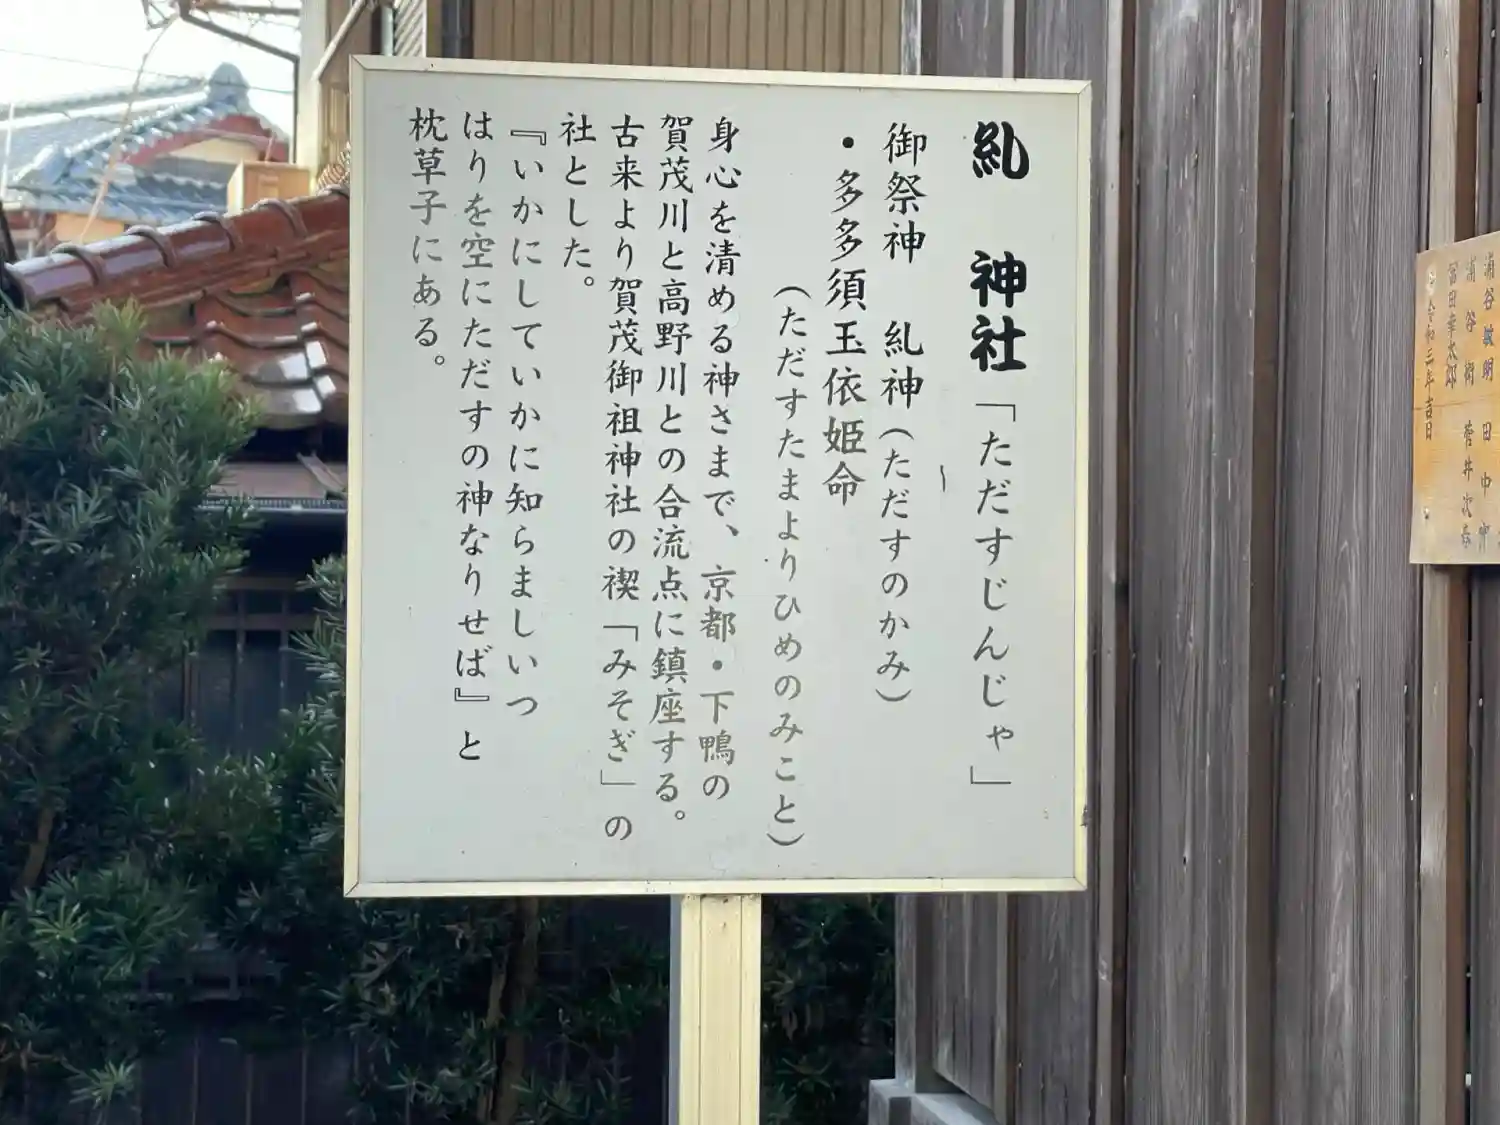 糺　神社「ただすじんじゃ」
御祭神　糺神（ただすのかみ）
・多多須玉依姫命
（ただすたまよりひめのみこと）
身心を清める神さまで、京都・下鴨の
賀茂川と高野川との合流点に鎮座する。
古来より賀茂御祖神社の禊「みそぎ」の
社とした。
『いかにしていかに知らましいつ
はりを空にただすの神なりせば』と
枕草子にある。
浦谷敏明　田中
浦谷　　菅井次
冨田幸太郎
令和三年吉日